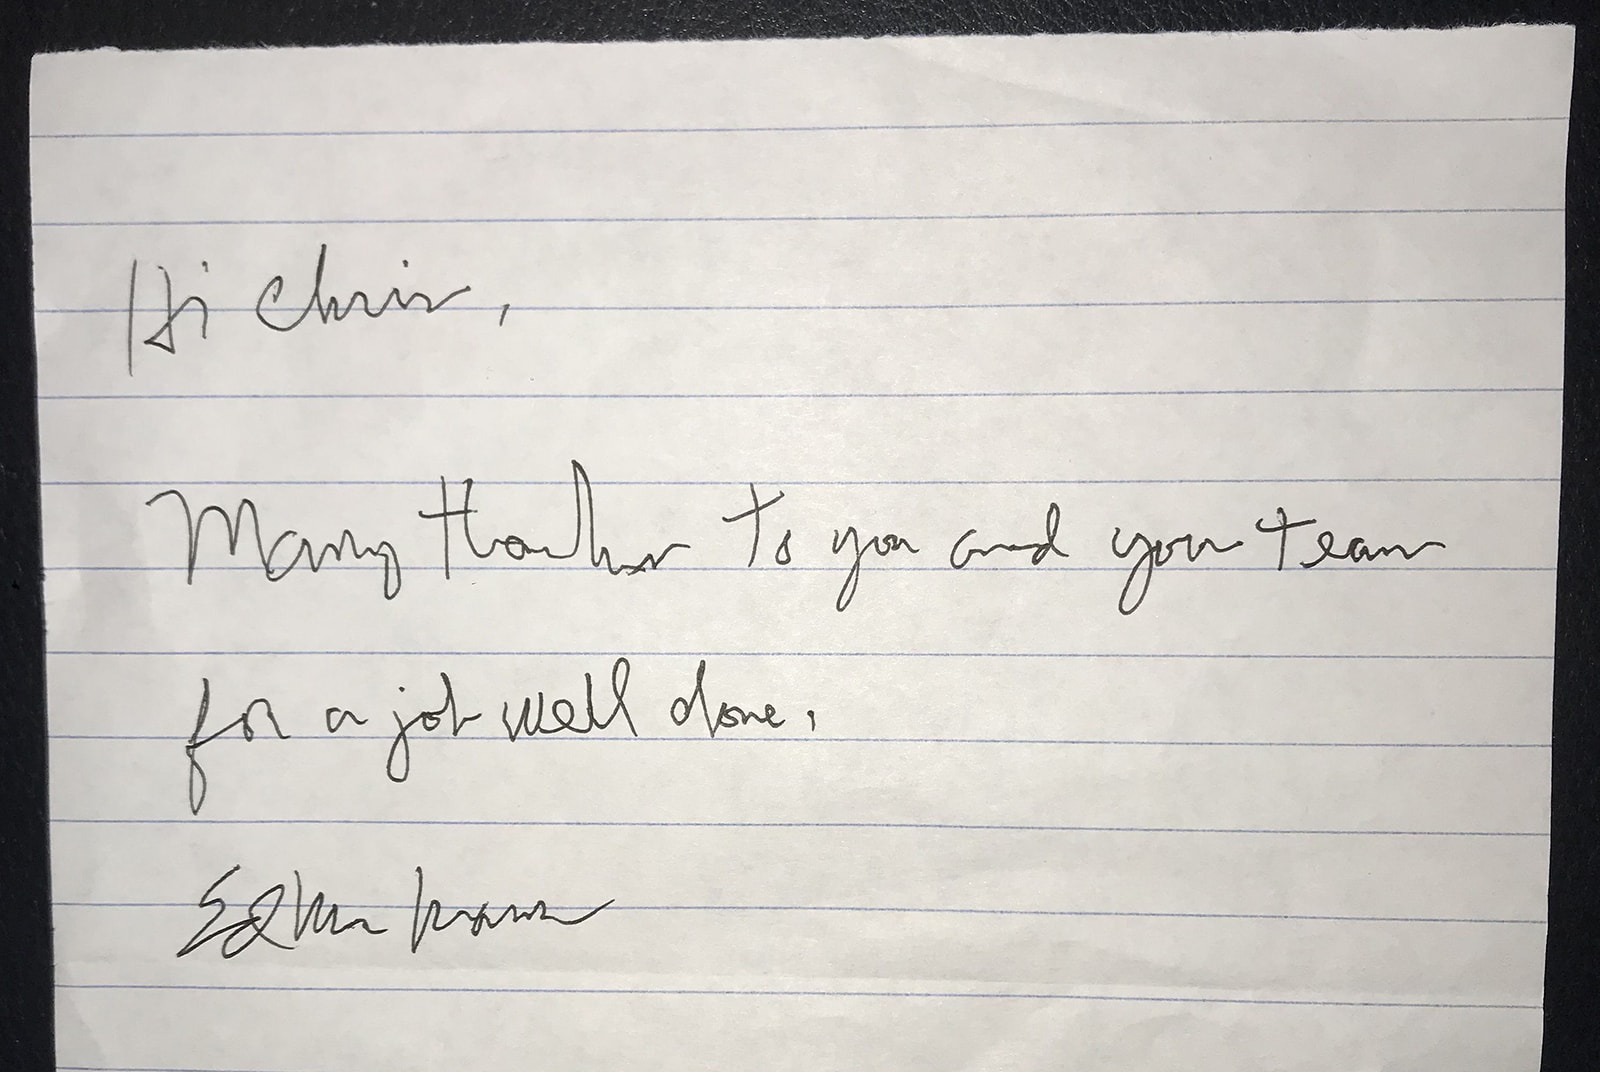 Hi Chris,
Many thanks to you and your team
for a job well done.